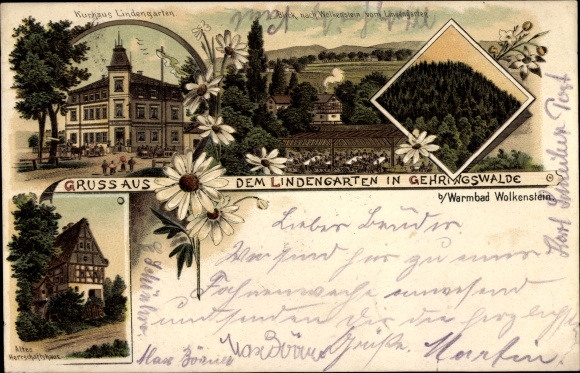 Kurhaus Lindengarten.
Blick nach Wolkenstein vom Lindengarten
GRUSS AUS DEM LINDENGARTEN IN GEHRINGSWALDE
b/Warmbad Wolkenstein.
Altes
Herrschaftshaus
Lieber Bruder
Wir sind hier zu einer
Fahnenweihe anwesend
und senden dir die herzlichsten
Grüße. Martin.
Max Börner